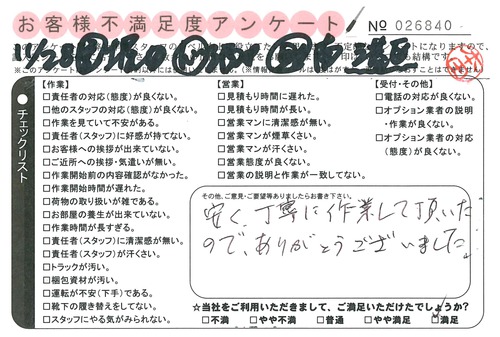 お客様不満足度アンケート
No 026840
11/28
チェックリスト
【作業】
□責任者の対応(態度)が良くない。
□他のスタッフの対応(態度)が良くない。
□作業を見ていて不安がある。
□責任者(スタッフ)に好感が持てない。
□お客様への挨拶が出来ていない。
□ご近所への挨拶・気遣いが無い。
□作業開始前の内容確認がなかった。
□作業開始時間が遅れた。
□荷物の取り扱いが雑である。
□お部屋の養生が出来ていない。
□作業時間が長すぎる。
□責任者(スタッフ)に清潔感が無い。
□責任者(スタッフ)が汗くさい。
□トラックが汚い。
□梱包資材が汚い。
□運転が不安(下手)である。
□靴下の履き替えをしてない。
□スタッフにやる気がみられない。
【営業】
□見積もり時間に遅れた。
□見積もり時間が長い。
□営業マンに清潔感が無い。
□営業マンが煙草くさい。
□営業マンが汗くさい。
□営業態度が良くない。
□営業の説明と作業が一致してない。
【受付・その他】
□電話の対応が良くない。
□オプション業者の説明・作業が良くない。
□オプション業者の対応(態度)が良くない。
その他、ご意見・ご要望等ありましたらお書き下さい。
安く、丁寧に作業して頂いた
ので、ありがとうございました。
☆当社をご利用いただきまして、ご満足いただけたでしょうか?
□不満 □やや不満 □普通 □やや満足 □満足